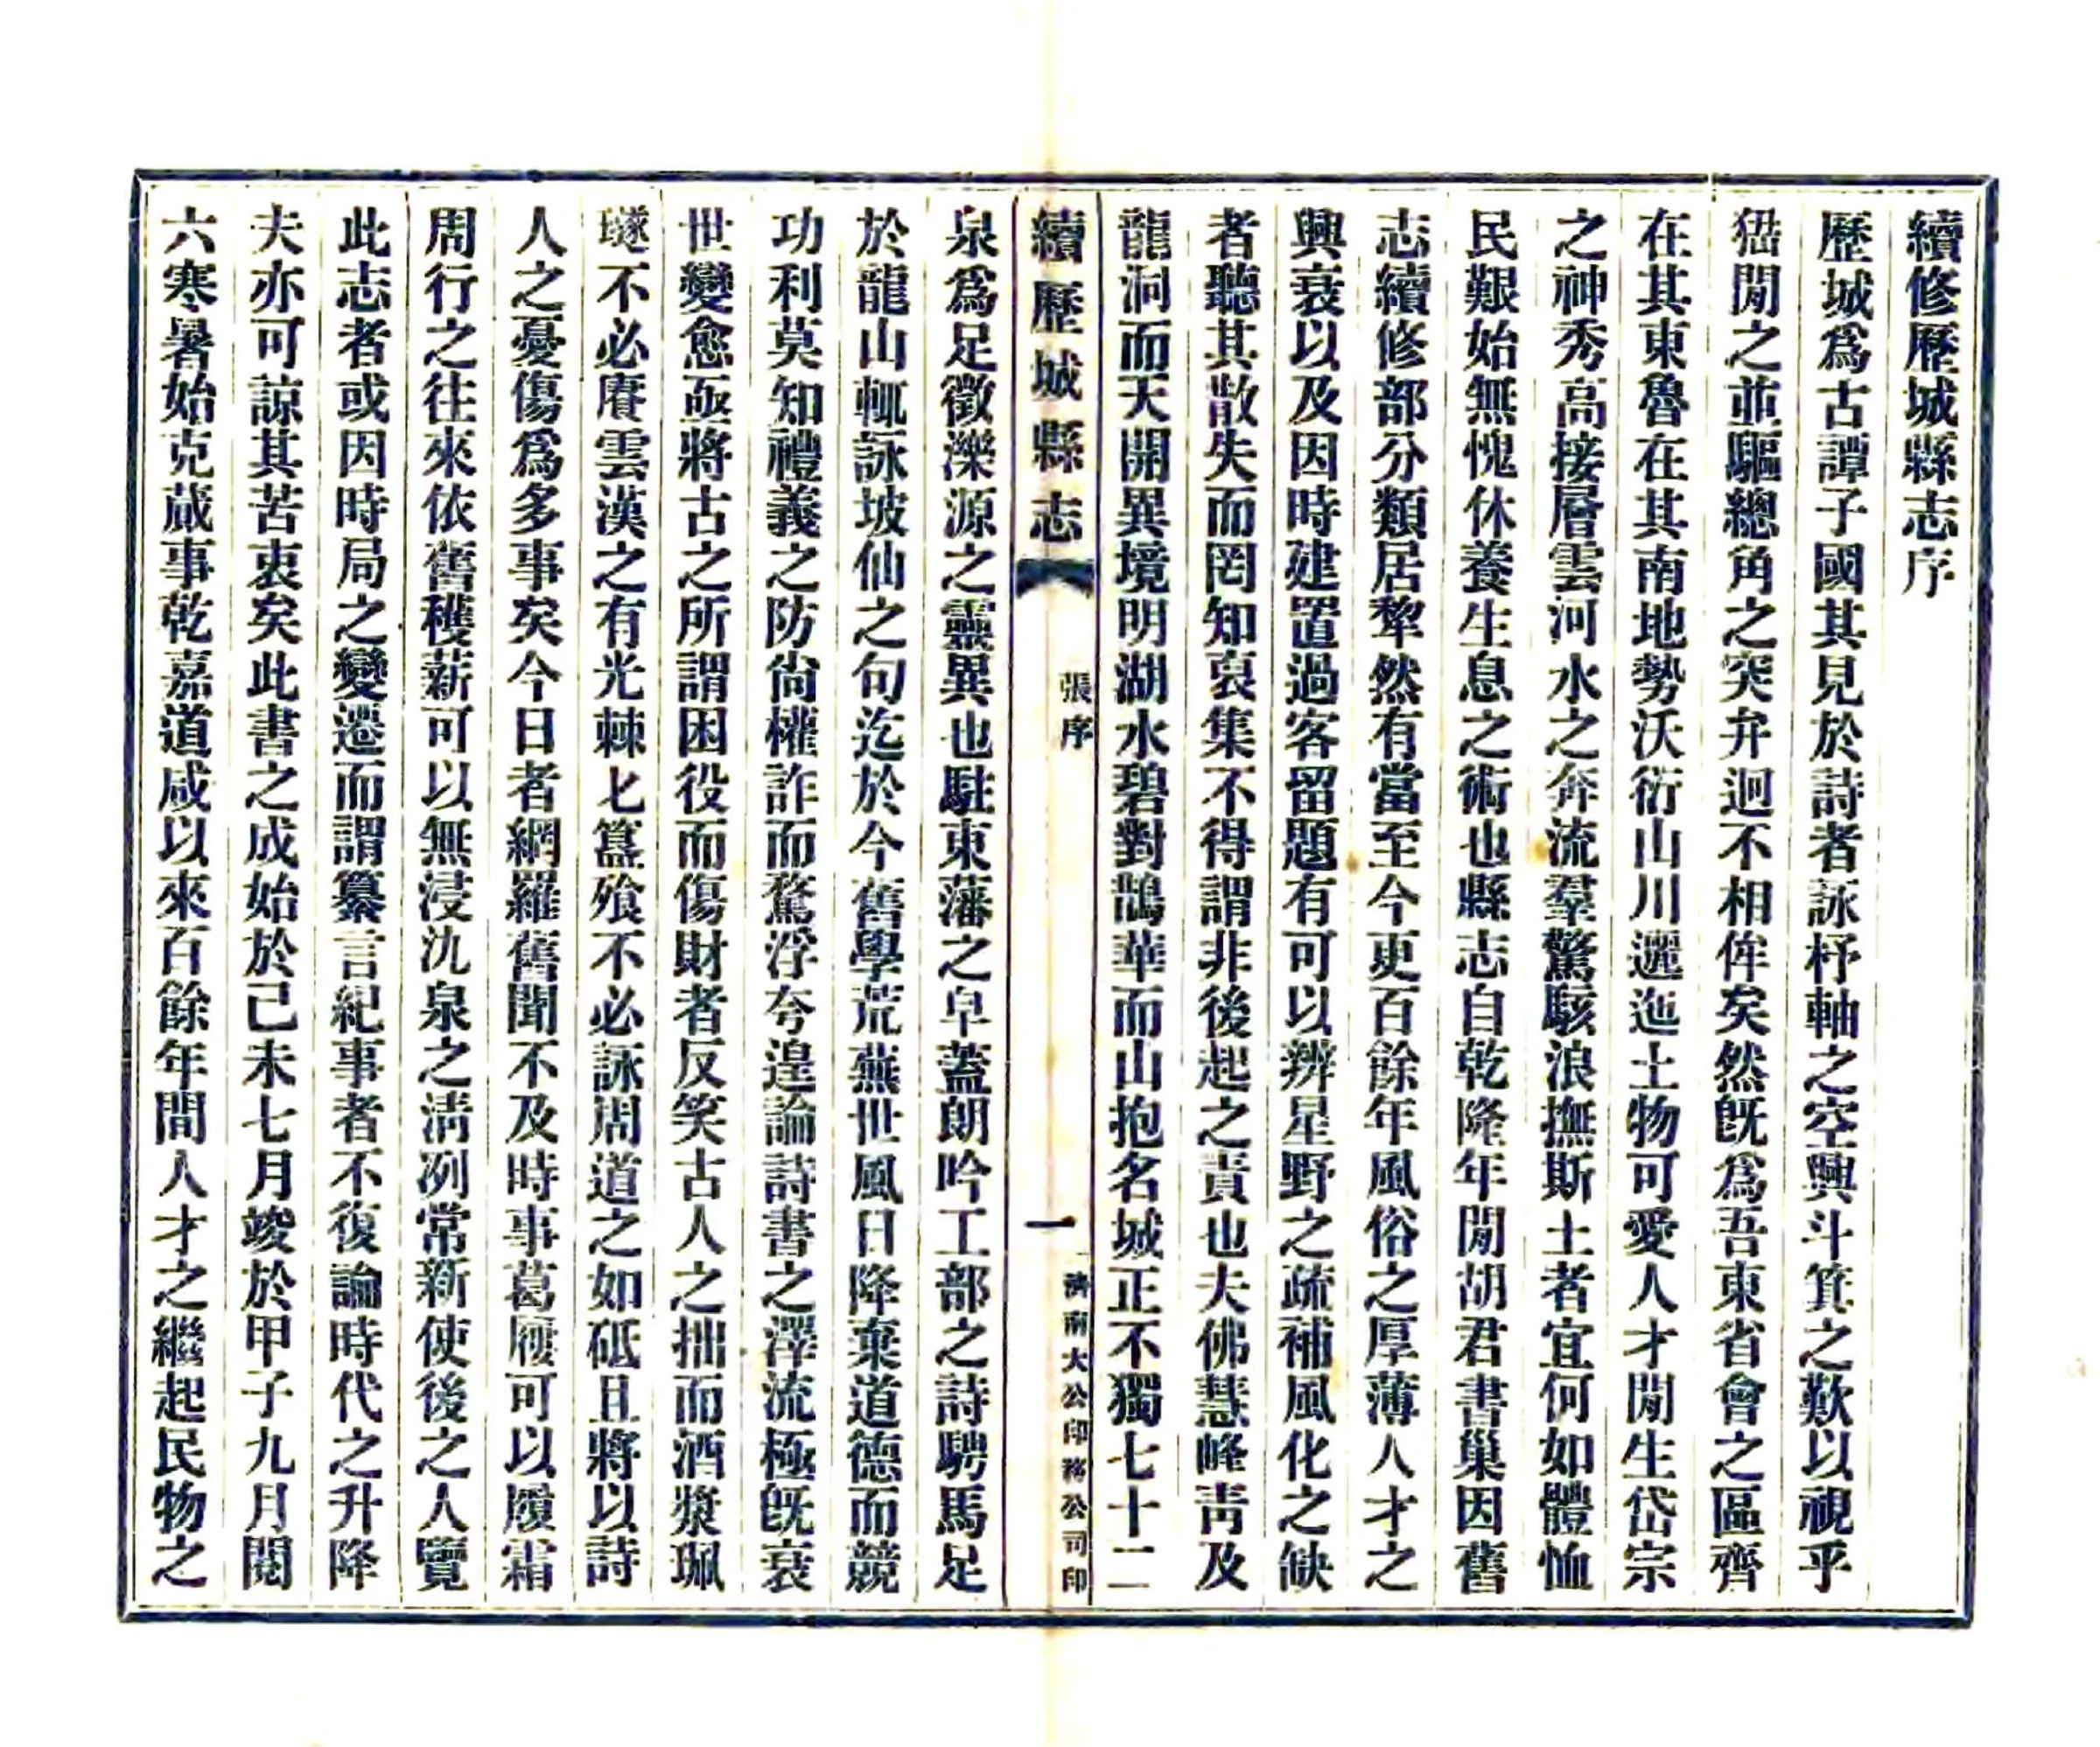 續修歷城縣志序
歷城爲古譚子國其見於詩者詠杼軸之空興斗箕之歎以視乎
猺閒之並驅總角之突弁迥不相侔矣然既爲吾東省會之區齊
在其東魯在其南地勢沃衍山川邐迤土物可愛人才閒生岱宗
之神秀高接層雲河水之奔流羣驚駭浪撫斯土者宜何如體恤
民艱始無愧休養生息之術也縣志自乾隆年閒胡君書巢因舊
志續修部分類居犂然有當至今更百餘年風俗之厚薄人才之
興衰以及因時建置過客留題有可以辨星野之疏補風化之缺
者聽其散失而罔知裒集不得謂非後起之責也夫佛慧峰靑及
龍洞而天開異境明湖水碧對鵲華而山抱名城正不獨七十二
續歷城縣志
張序
一
濟南大公印務公司印
泉爲足徵濼源之靈異也駐東藩之皁蓋朗吟工部之詩騁馬足
於龍山輒詠坡仙之句迄於今舊學荒蕪世風日降棄道德而競
功利莫知禮義之防尙權詐而騖浮夸遑論詩書之澤流極旣衰
世變愈亟將古之所謂困役而傷財者反笑古人之拙而酒漿珮
璲不必賡雲漢之有光棘匕簋飱不必詠周道之如砥且將以詩
人之憂傷爲多事矣今日者網羅舊聞不及時事葛屨可以履霜
周行之往來依舊穫薪可以無浸氿泉之淸冽常新使後之人覽
此志者或因時局之變遷而謂纂言紀事者不復論時代之升降
夫亦可諒其苦衷矣此書之成始於己未七月竣於甲子九月閱
六寒暑始克蕆事乾嘉道咸以來百餘年間人才之繼起民物之